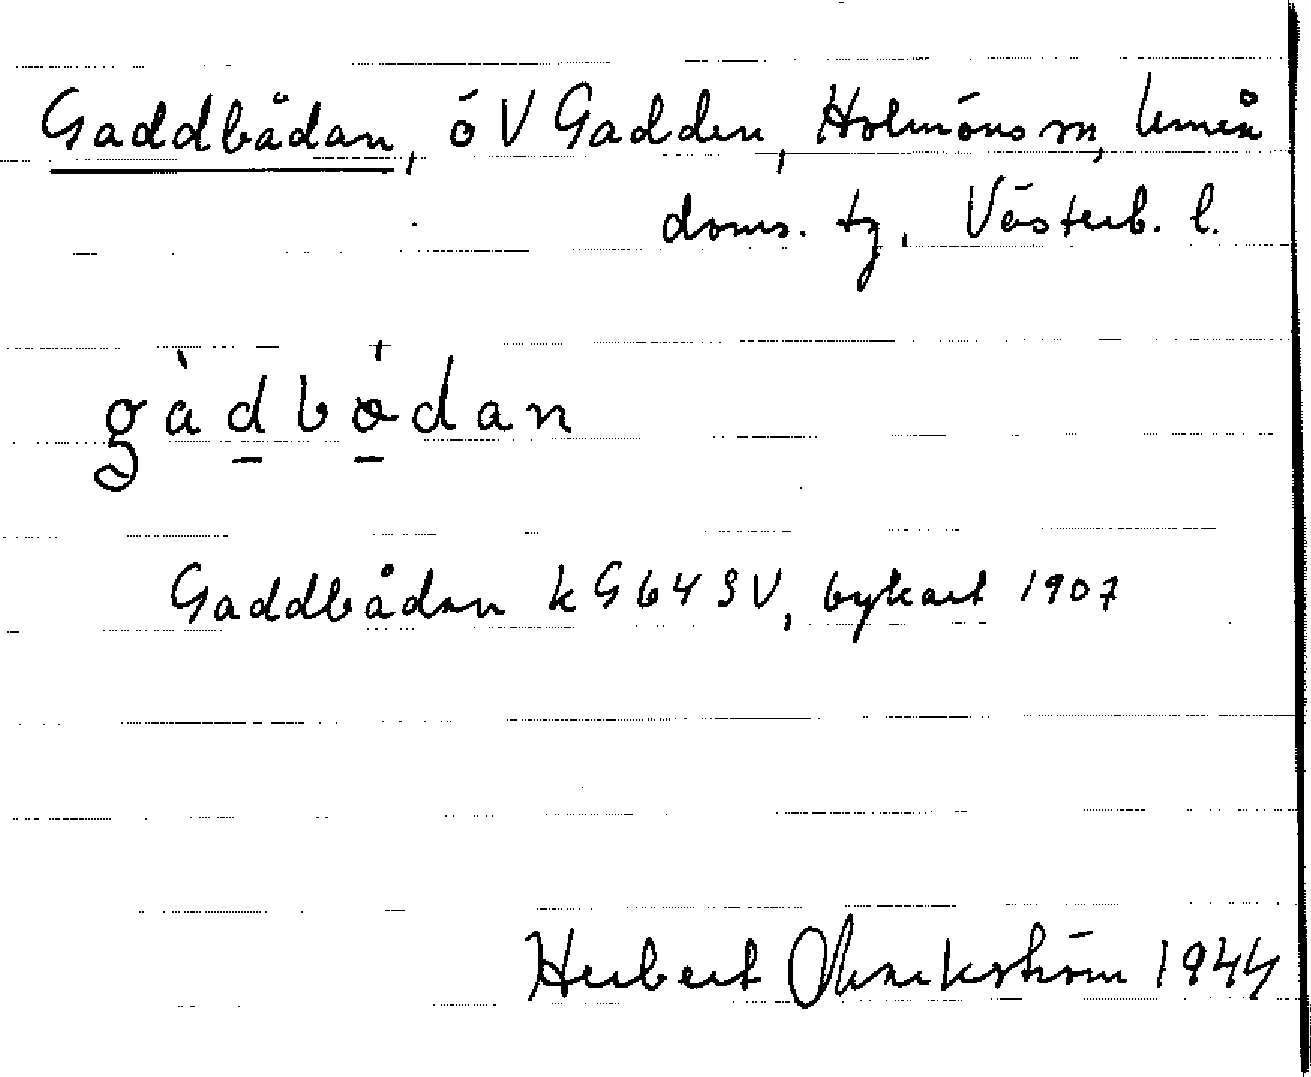 Gaddbådan, ö V Gadden, Holmöns sn, Umeå
doms. tg, Västerb. l.
gàdbödan
Gaddbådan k G 64 SV, bykart 1907
Herbert 1944